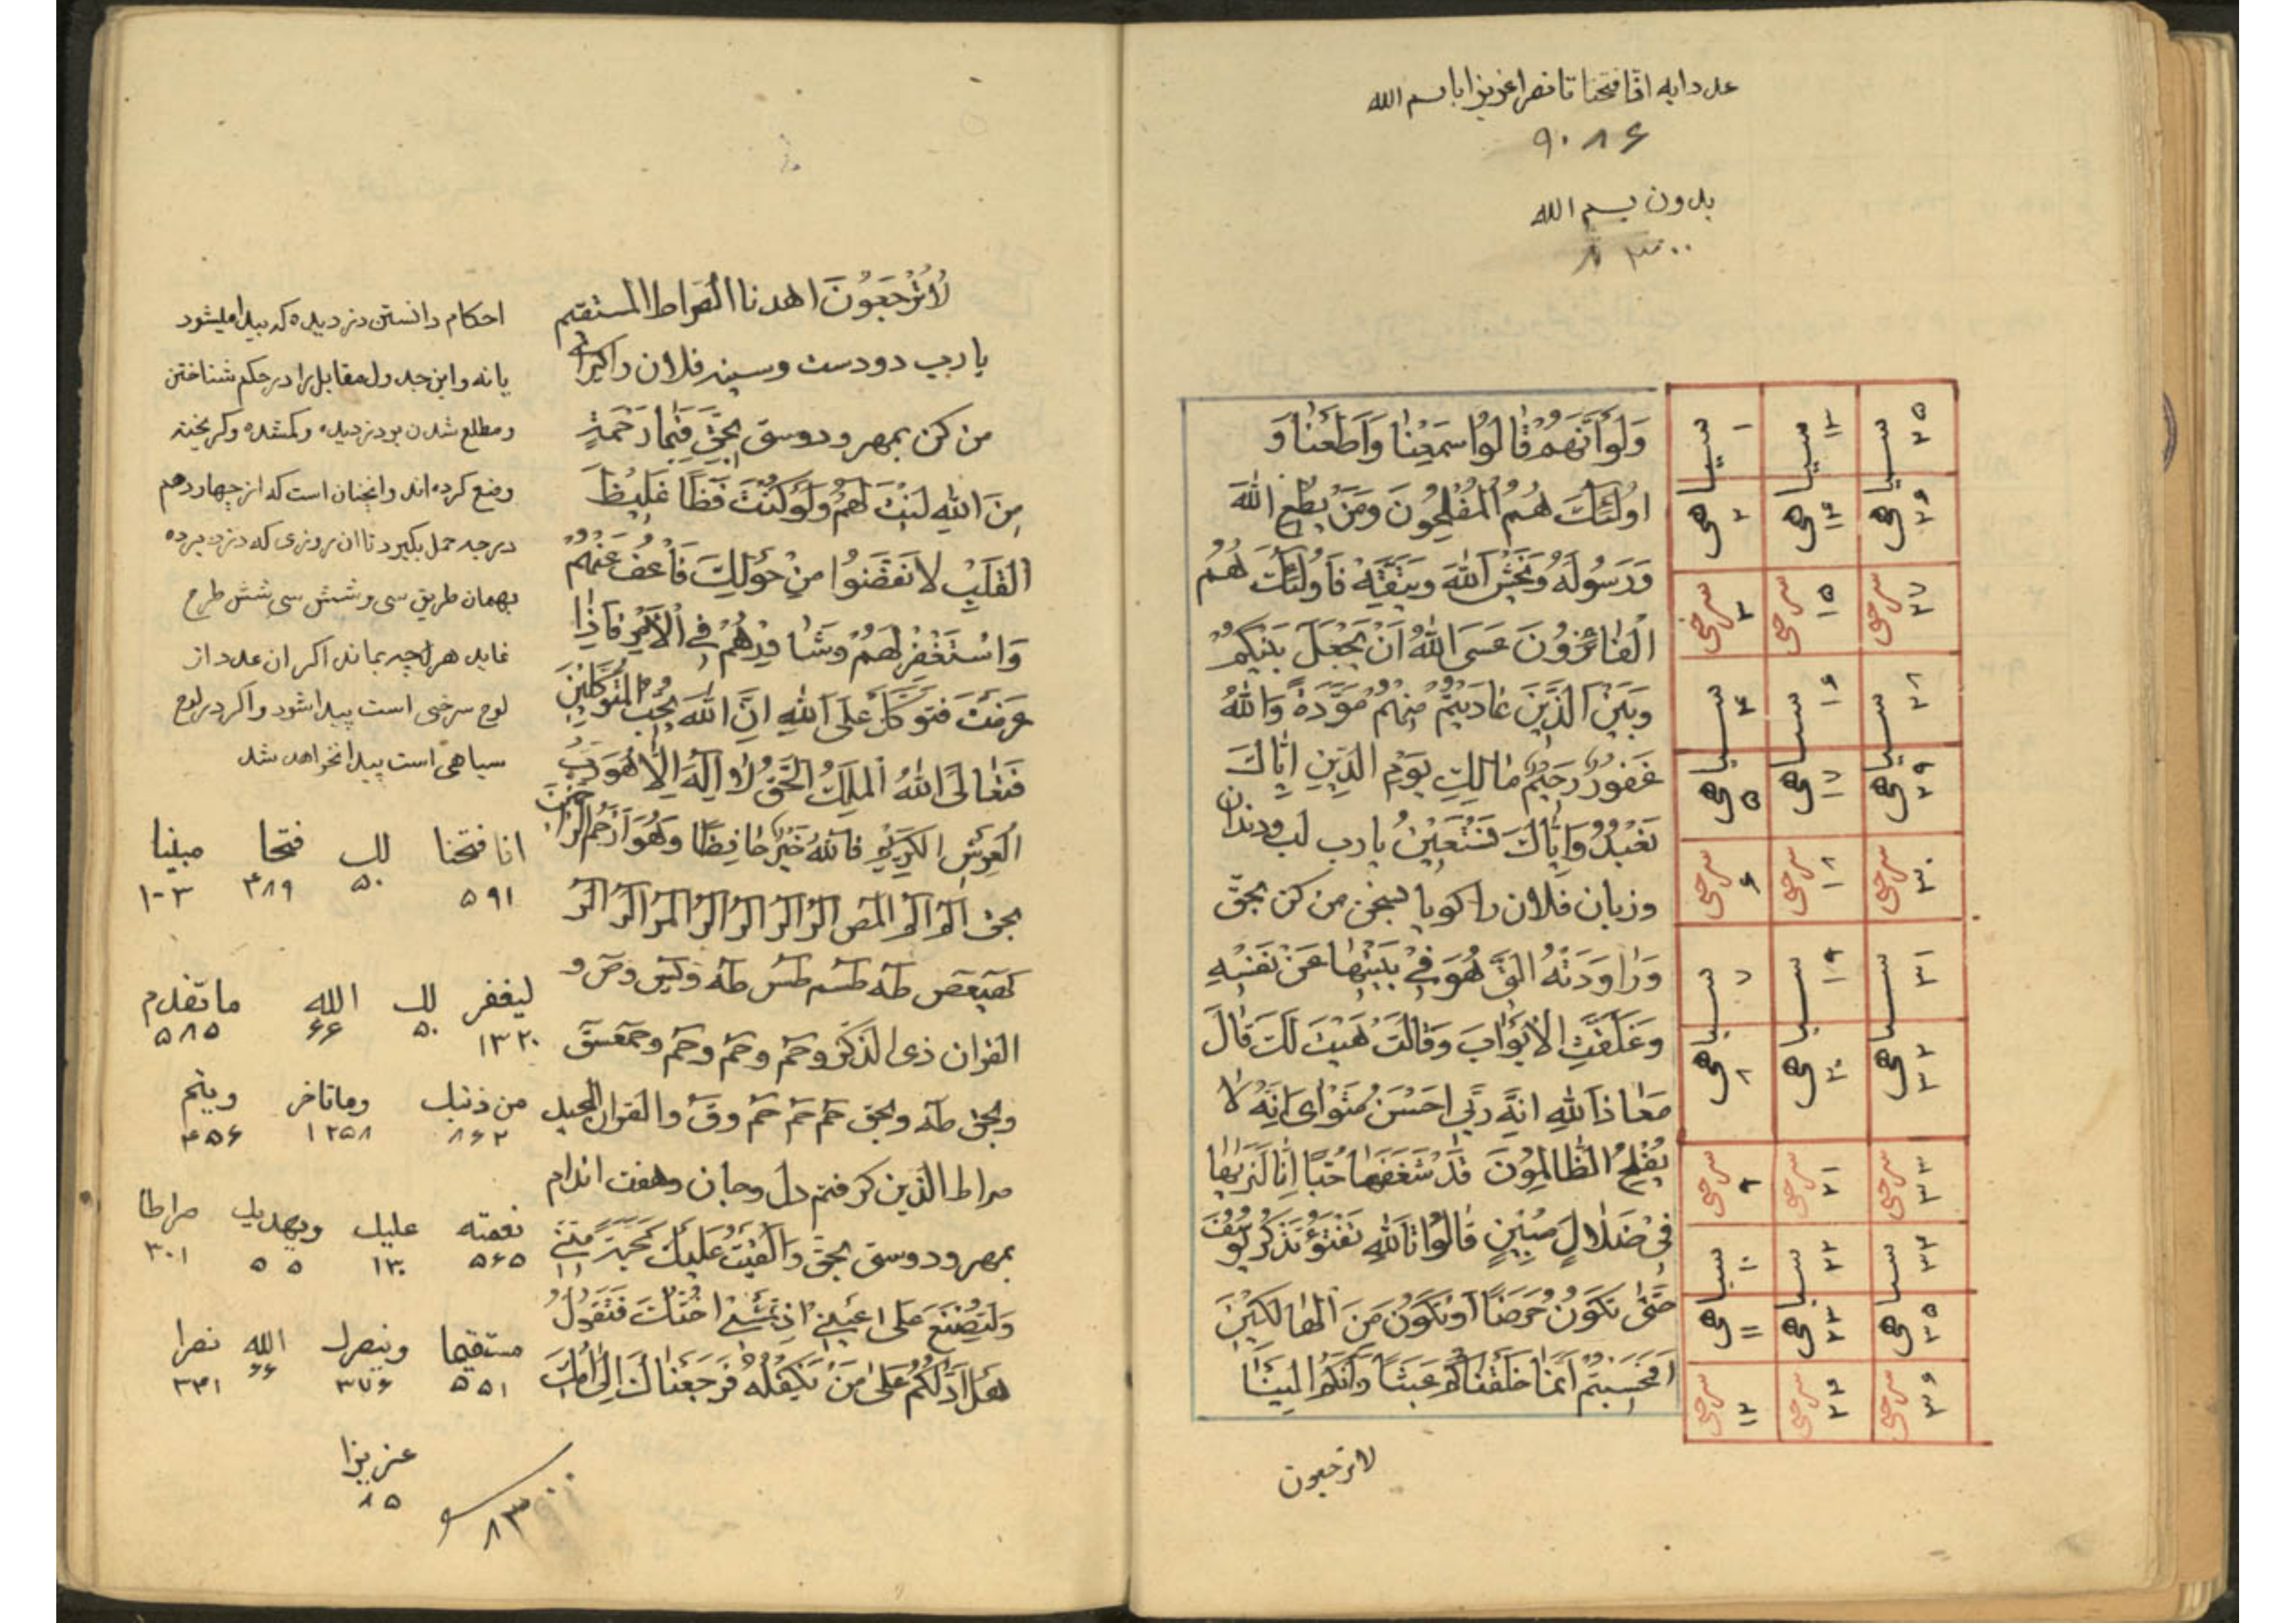 عدد ایه انا فتحنا تا نصرا عزیزا با بسم الله
۹۰۸۶
بدون بسم الله
۸۳۰۰
وَلَوْ اَنَّهُمْ قٰالُوا سَمِعْنٰا وَاَطَعْنٰا وَ
اُولٰئِكَ هُمُ الْمُفْلِحُونَ وَمَنْ يُطِعِ اللهَ
وَرَسُولَهُ وَيَخْشَ اللهَ وَيَتَّقْهِ فَاُولٰئِكَ هُمُ
الْفٰائِزُونَ عَسَى اللهُ اَنْ يَجْعَلَ بَيْنَكُمْ
وَبَيْنَ الَّذِينَ عٰادَيْتُمْ مِنْهُمْ مَوَدَّةً وَاللهُ
غَفُورٌ رَحِيمٌ مٰالِكِ يَوْمِ الدِّينِ اِيّٰاكَ
نَعْبُدُ وَاِيّٰاكَ نَسْتَعِينُ يا رب لب ودندان
وزبان فلان را كويا بسخن من كن بحق
وَرٰاوَدَتْهُ الَّتِي هُوَ فِي بَيْتِهٰا عَنْ نَفْسِهِ
وَغَلَّقَتِ الْاَبْوٰابَ وَقٰالَتْ هَيْتَ لَكَ قٰالَ
مَعٰاذَ اللهِ اِنَّهُ رَبِّي اَحْسَنَ مَثْوٰاىَ اِنَّهُ لٰا
يُفْلِحُ الظّٰالِمُونَ قَدْ شَغَفَهٰا حُبًّا اِنّٰا لَنَرٰيهٰا
فِي ضَلٰالٍ مُبِينٍ قٰالُوا تَاللهِ تَفْتَؤُ تَذْكُرُ يُوسُفَ
حَتّٰى تَكُونَ حَرَضًا اَوْ تَكُونَ مِنَ الْهٰالِكِينَ
اَفَحَسِبْتُمْ اَنَّمٰا خَلَقْنٰاكُمْ عَبَثًا وَاَنَّكُمْ اِلَيْنٰا
لا ترجعون
۲۵ ۱۳ ۱
سیاهی سیاهی سیاهی
۲۶ ۱۴ ۲
سرخی ۲۷ سرخی ۱۵ سرخی ۳
۲۸ ۱۶ ۴
سیاهی سیاهی سیاهی
۲۹ ۱۷ ۵
سرخی ۳۰ سرخی ۱۸ سرخی ۶
۳۱ ۱۹ ۷
سیاهی سیاهی سیاهی
۳۲ ۲۰ ۸
سرخی ۳۳ سرخی ۲۱ سرخی ۹
۳۴ ۲۲ ۱۰
سیاهی سیاهی سیاهی
۳۵ ۲۳ ۱۱
سرخی ۳۶ سرخی ۲۴ سرخی ۱۲
لٰا تُرْجَعُونَ اهدنا الصراط المستقیم
یا رب دو دست وسینه فلان را
من کن بمهر و دوستی بحق فَبِمٰا رَحْمَةٍ
مِنَ اللهِ لِنْتَ لَهُمْ وَلَوْ كُنْتَ فَظًّا غَلِيظَ
الْقَلْبِ لَانْفَضُّوا مِنْ حَوْلِكَ فَاعْفُ عَنْهُمْ
وَاسْتَغْفِرْ لَهُمْ وَشٰاوِرْهُمْ فِي الْاَمْرِ فَاِذٰا
عَزَمْتَ فَتَوَكَّلْ عَلَى اللهِ اِنَّ اللهَ يُحِبُّ الْمُتَوَكِّلِينَ
فَتَعٰالَى اللهُ الْمَلِكُ الْحَقُّ لٰا اِلٰهَ اِلّٰا هُوَ رَبُّ
الْعَرْشِ الْكَرِيمِ فَاللهُ خَيْرٌ حٰافِظًا وَهُوَ اَرْحَمُ الرّٰاحِمِينَ
بحق الم الم المص الر الر الر الر المر الر الر
كهيعص طه طسم طس طه ویس وص و
القران ذی الذكر وحم وحم وحم وحمعسق
وبحق طه وبحق حم حم حم وق والقران المجید
صراط الذین کرفتم دل وجان وهفت اندام
بمهر ودوستی بحق وَاَلْقَيْتُ عَلَيْكَ مَحَبَّةً مِنِّي
وَلِتُصْنَعَ عَلٰى عَيْنِي اِذْ تَمْشِي اُخْتُكَ فَتَقُولُ
هَلْ اَدُلُّكُمْ عَلٰى مَنْ يَكْفُلُهُ فَرَجَعْنٰاكَ اِلٰى اُمِّكَ
احکام دانستن دزدیده که پیدا میشود
یا نه واین جدول مقابل را در حکم شناختن
ومطلع شدن بر دزدیده وکمشده وکریخته
وضع کرده اند وانچنان است که از چهاردهم
درجه حمل بکیرد تا ان روزی که دزد برده
بهمان طریق سی وشش سی شش طرح
نماید هر انچه بماند اکر ان عدد از
لوح سرخی است پیدا شود واکر در لوح
سیاهی است پیدا نخواهد شد
انا فتحنا لك فتحا مبینا
۵۹۱ ۵۰ ۴۸۹ ۱۰۳
لیغفر لك الله ما تقدم
۱۳۲۰ ۵۰ ۶۶ ۵۸۵
من ذنبك وما تاخر ویتم
۸۶۲ ۱۲۵۸ ۴۵۶
نعمته علیك ویهدیك صراطا
۵۶۵ ۱۳۰ ۵۵ ۳۰۱
مستقیما وینصرك الله نصرا
۵۵۱ ۳۷۶ ۶۶ ۳۴۱
عزیزا
۸۵
۸۳۰۰